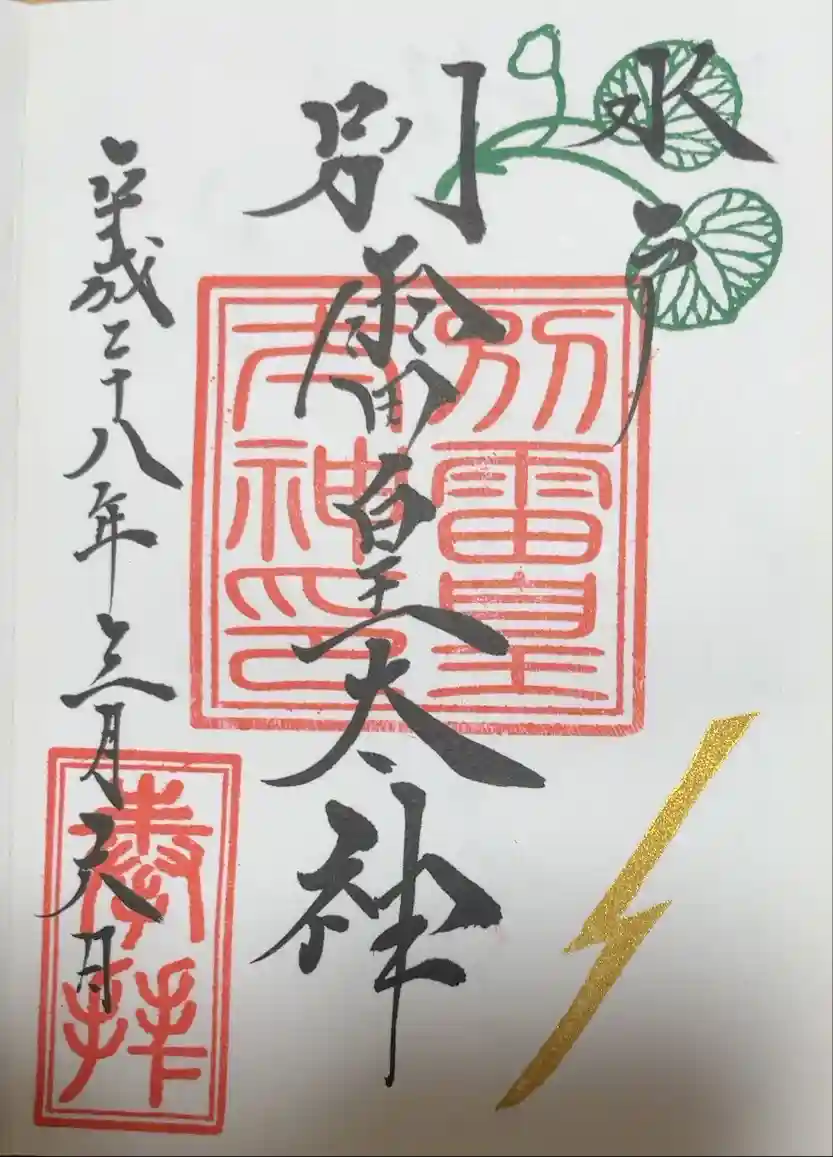 水戸
別雷皇太神
別雷皇
太神印
平成二十八年三月日
奉拝